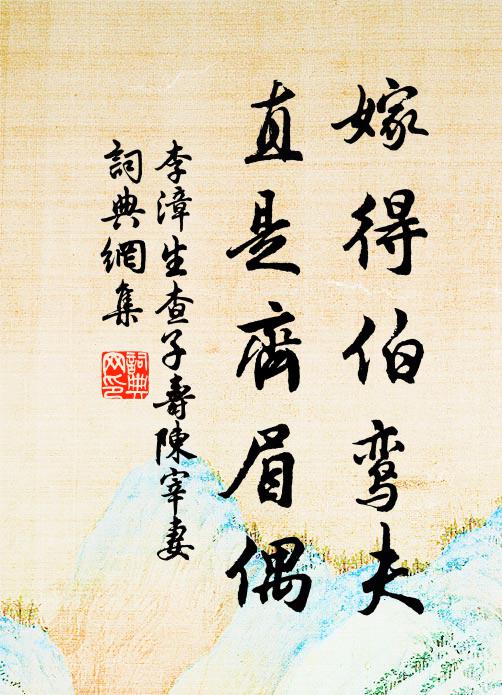 嫁得伯鸾夫
直是齊眉偶
李漳生查子壽陳宰妻
詞典網集
詞典网印